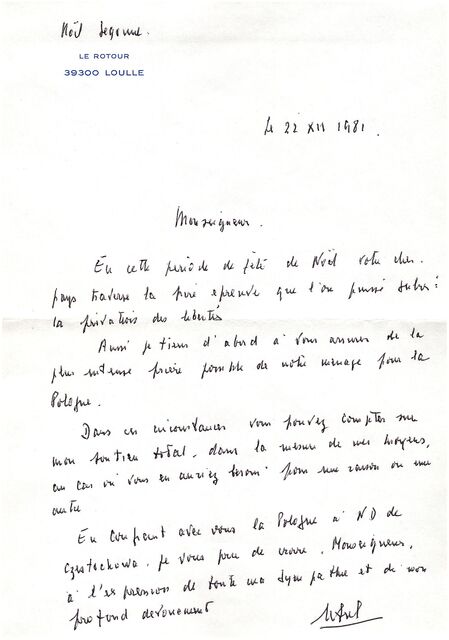 Noël
LE ROTOUR
39300 LOULLE
le 22 XII 1981.
Monseigneur.
En cette période de fêté de Noël votre cher.
pays traverse la pire épreuve que l'on puisse subir :
la privation des libertés
Aussi je tiens d'abord à vous assurer de la
plus intense prière possible de notre ménage pour la
Pologne.
Dans ces circonstances vous pouvez compter sur
mon soutien total, dans la mesure de mes moyens,
au cas où vous en auriez besoin pour une raison ou une
autre
En confiant avec vous la Pologne à ND de
Czestochowa. je vous prie de croire, Monseigneur,
à l'expression de toute ma sympathie et de mon
profond dévouement